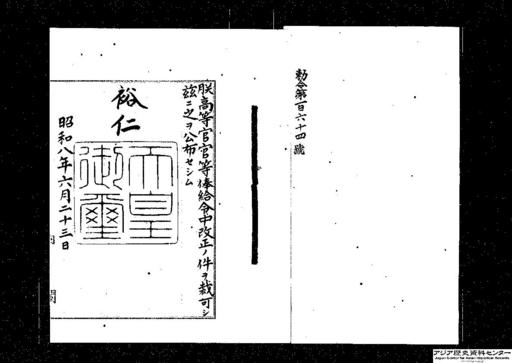 勅令第百六十四號
朕高等官官等俸給令中改正ノ件ヲ裁可シ
玆ニ之ヲ公布セシム
裕仁
天皇御璽
昭和八年六月二十三日
アジア歴史資料センター
Japan Center for Asian Historical Records